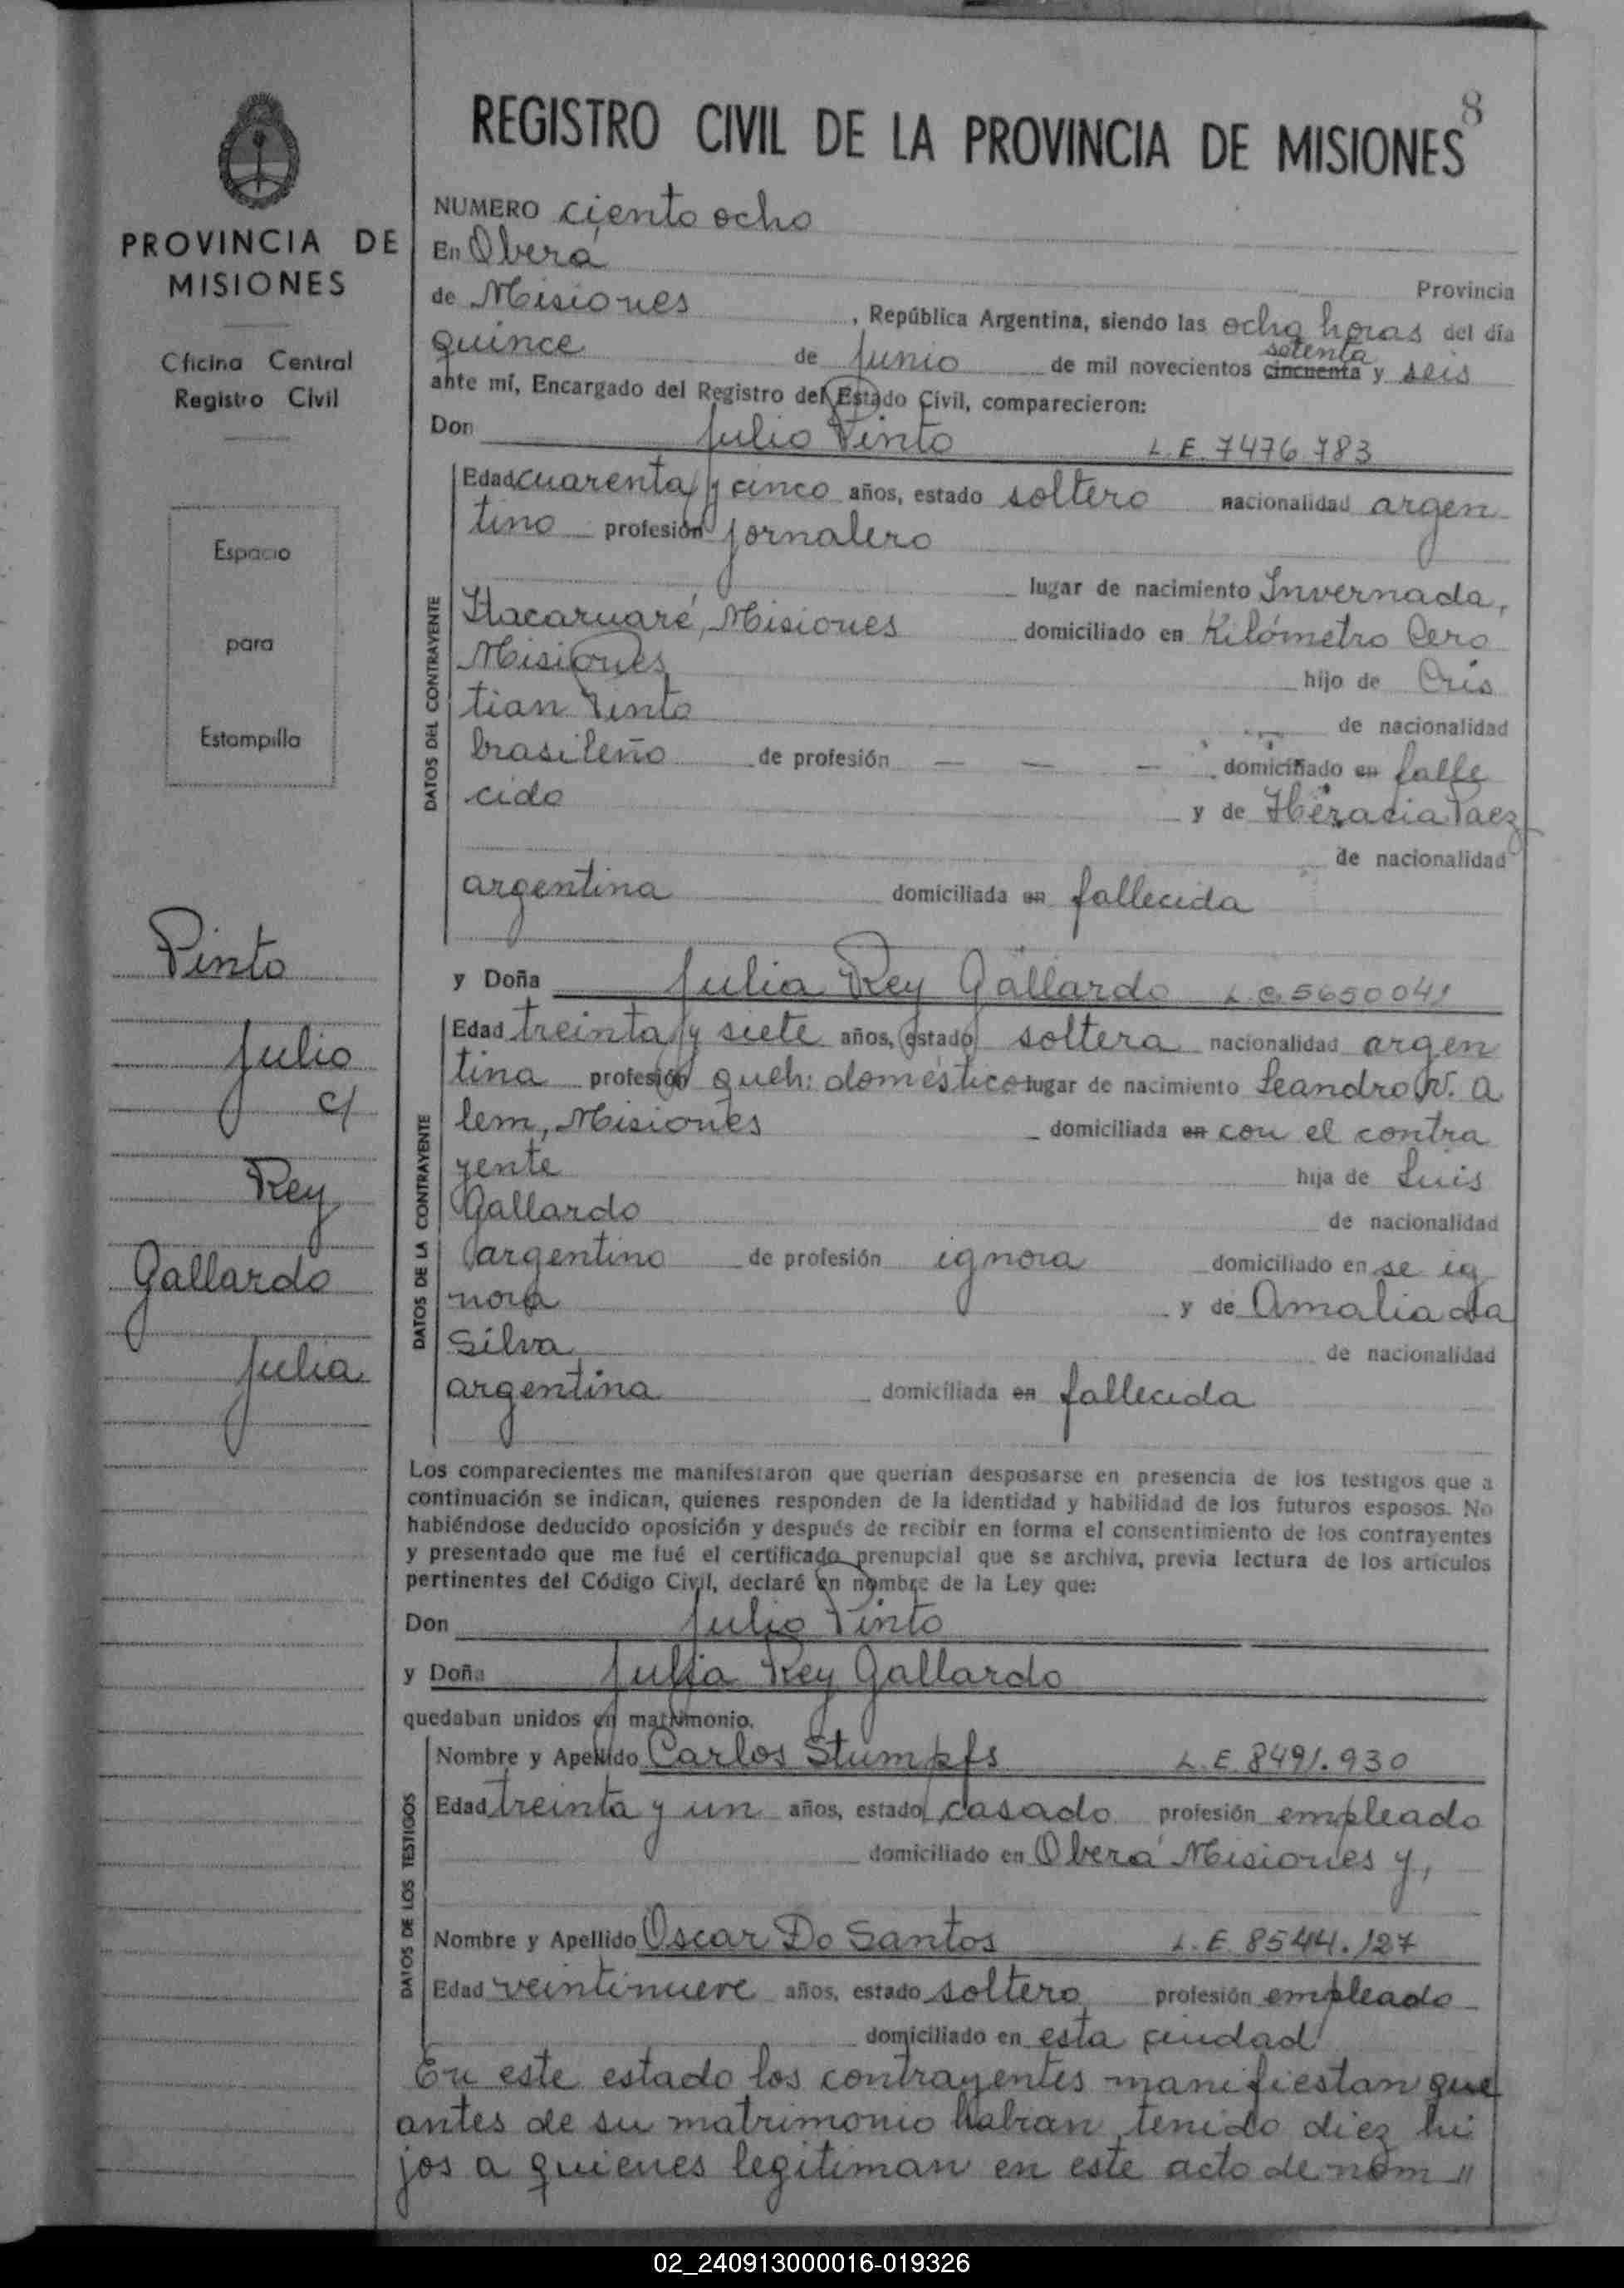 8
REGISTRO CIVIL DE LA PROVINCIA DE MISIONES
PROVINCIA DE
MISIONES
Oficina Central
Registro Civil
Espacio
para
Estampilla
Pinto
Julio
c/
Rey
Gallardo
Julia
NUMERO ciento ocho
En Oberá
Provincia
de Misiones, República Argentina, siendo las ocho horas del día
quince de junio de mil novecientos cincuenta setenta y seis
ante mí, Encargado del Registro del Estado Civil, comparecieron:
Don Julio Pinto L.E. 7476.783
DATOS DEL CONTRAYENTE
Edad cuarenta y cinco años, estado soltero nacionalidad argen
tino profesión jornalero
lugar de nacimiento Invernada,
Itacaruaré, Misiones domiciliado en Kilómetro Cero
Misiones hijo de Cris
tian Pinto de nacionalidad
brasileño de profesión — — — domiciliado en falle
cido y de Heracia Paez
de nacionalidad
argentina domiciliada en fallecida
y Doña Julia Rey Gallardo L.C. 5650041
DATOS DE LA CONTRAYENTE
Edad treinta y siete años, estado soltera nacionalidad argen
tina profesión queh: doméstico lugar de nacimiento Leandro N. A
lem, Misiones domiciliada en con el contra
yente hija de Luis
Gallardo de nacionalidad
argentino de profesión ignora domiciliado en se ig
nora y de Amalia da
Silva de nacionalidad
argentina domiciliada en fallecida
Los comparecientes me manifestaron que querían desposarse en presencia de los testigos que a
continuación se indican, quienes responden de la identidad y habilidad de los futuros esposos. No
habiéndose deducido oposición y después de recibir en forma el consentimiento de los contrayentes
y presentado que me fué el certificado prenupcial que se archiva, previa lectura de los artículos
pertinentes del Código Civil, declaré en nombre de la Ley que:
Don Julio Pinto
y Doña Julia Rey Gallardo
quedaban unidos en matrimonio.
DATOS DE LOS TESTIGOS
Nombre y Apellido Carlos Stumpfs L.E. 8491.930
Edad treinta y un años, estado casado profesión empleado
domiciliado en Oberá Misiones y,
Nombre y Apellido Oscar Do Santos L.E. 8544.127
Edad veintinueve años, estado soltero profesión empleado
domiciliado en esta ciudad
En este estado los contrayentes manifiestan que
antes de su matrimonio habian tenido diez hi
jos a quienes legitiman en este acto de nom //
02_240913000016-019326